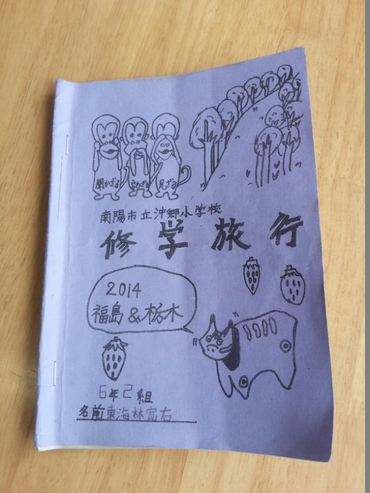 聞かざる 言わざる 見ざる
南陽市立沖郷小学校
修学旅行
2014
福島&栃木
6年2組
名前東海林宏右